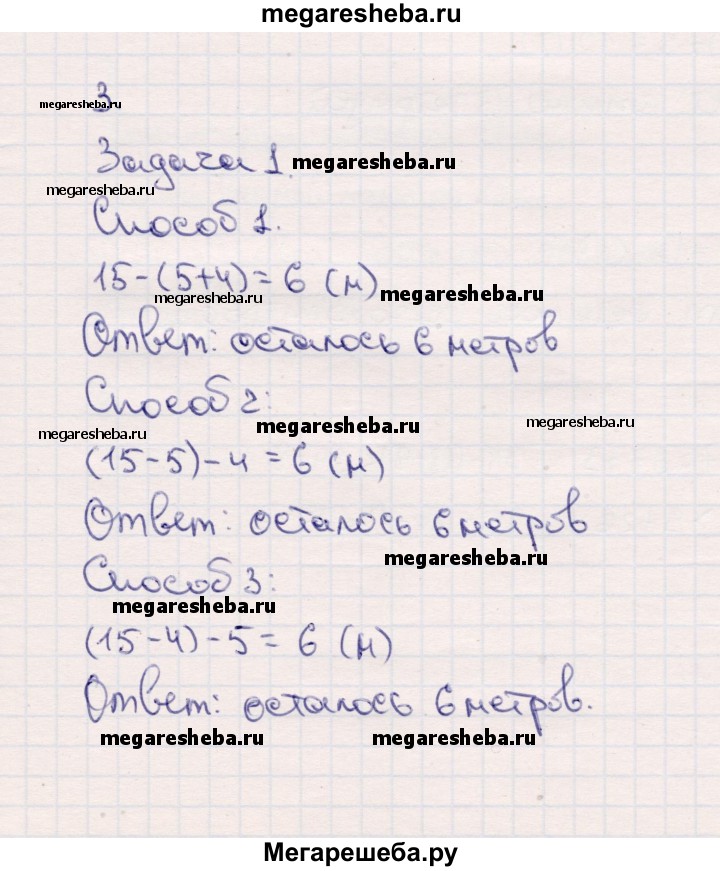 megaresheba.ru
3
megaresheba.ru
Задача 1. megaresheba.ru
megaresheba.ru
Способ 1.
15-(5+4)=6 (м)
megaresheba.ru megaresheba.ru
Ответ: осталось 6 метров
Способ 2:
megaresheba.ru megaresheba.ru megaresheba.ru
(15-5)-4=6 (м)
Ответ: осталось 6 метров
megaresheba.ru
Способ 3:
megaresheba.ru
(15-4)-5=6 (м)
Ответ: осталось 6 метров.
megaresheba.ru megaresheba.ru
Мегарешеба.ру